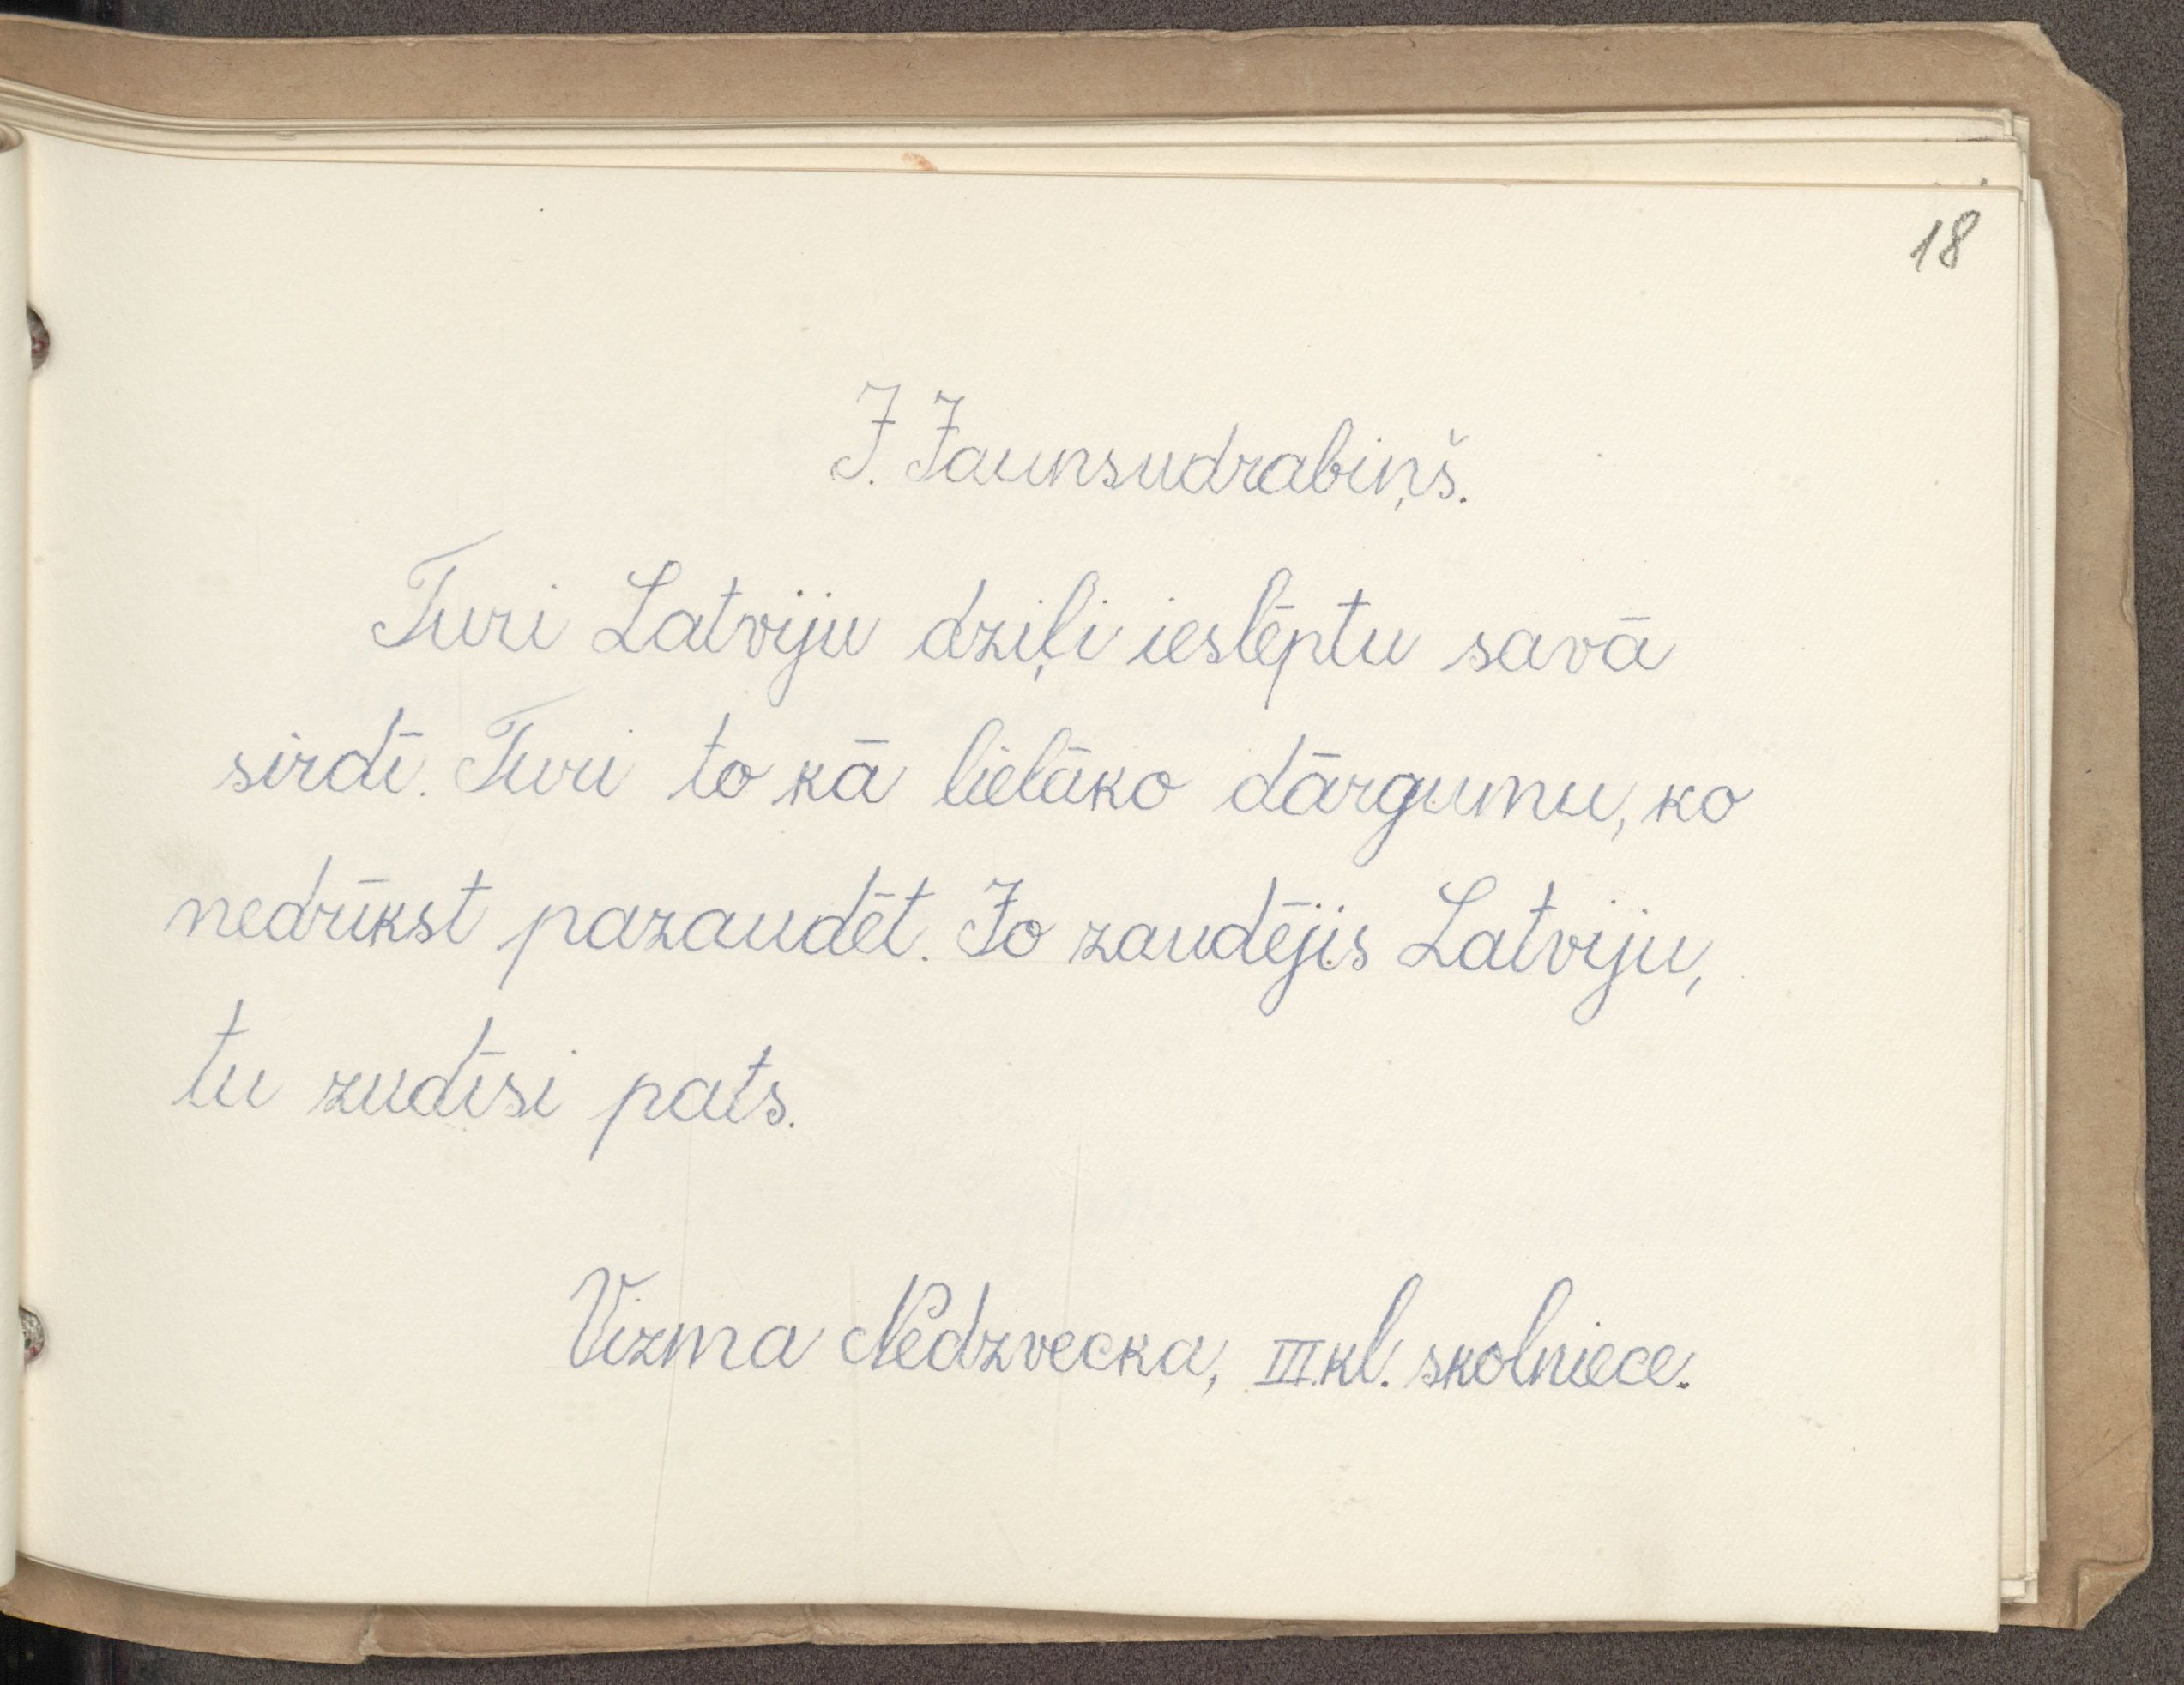 18
J. Jaunsudrabiņš.
Turi Latviju dziļi ieslēptu savā
sirdī. Turi to kā lielāko dārgumu, ko
nedrīkst pazaudēt. Jo zaudējis Latviju,
tu zudīsi pats.
Vizma Nedzvecka, III kl. skolniece.